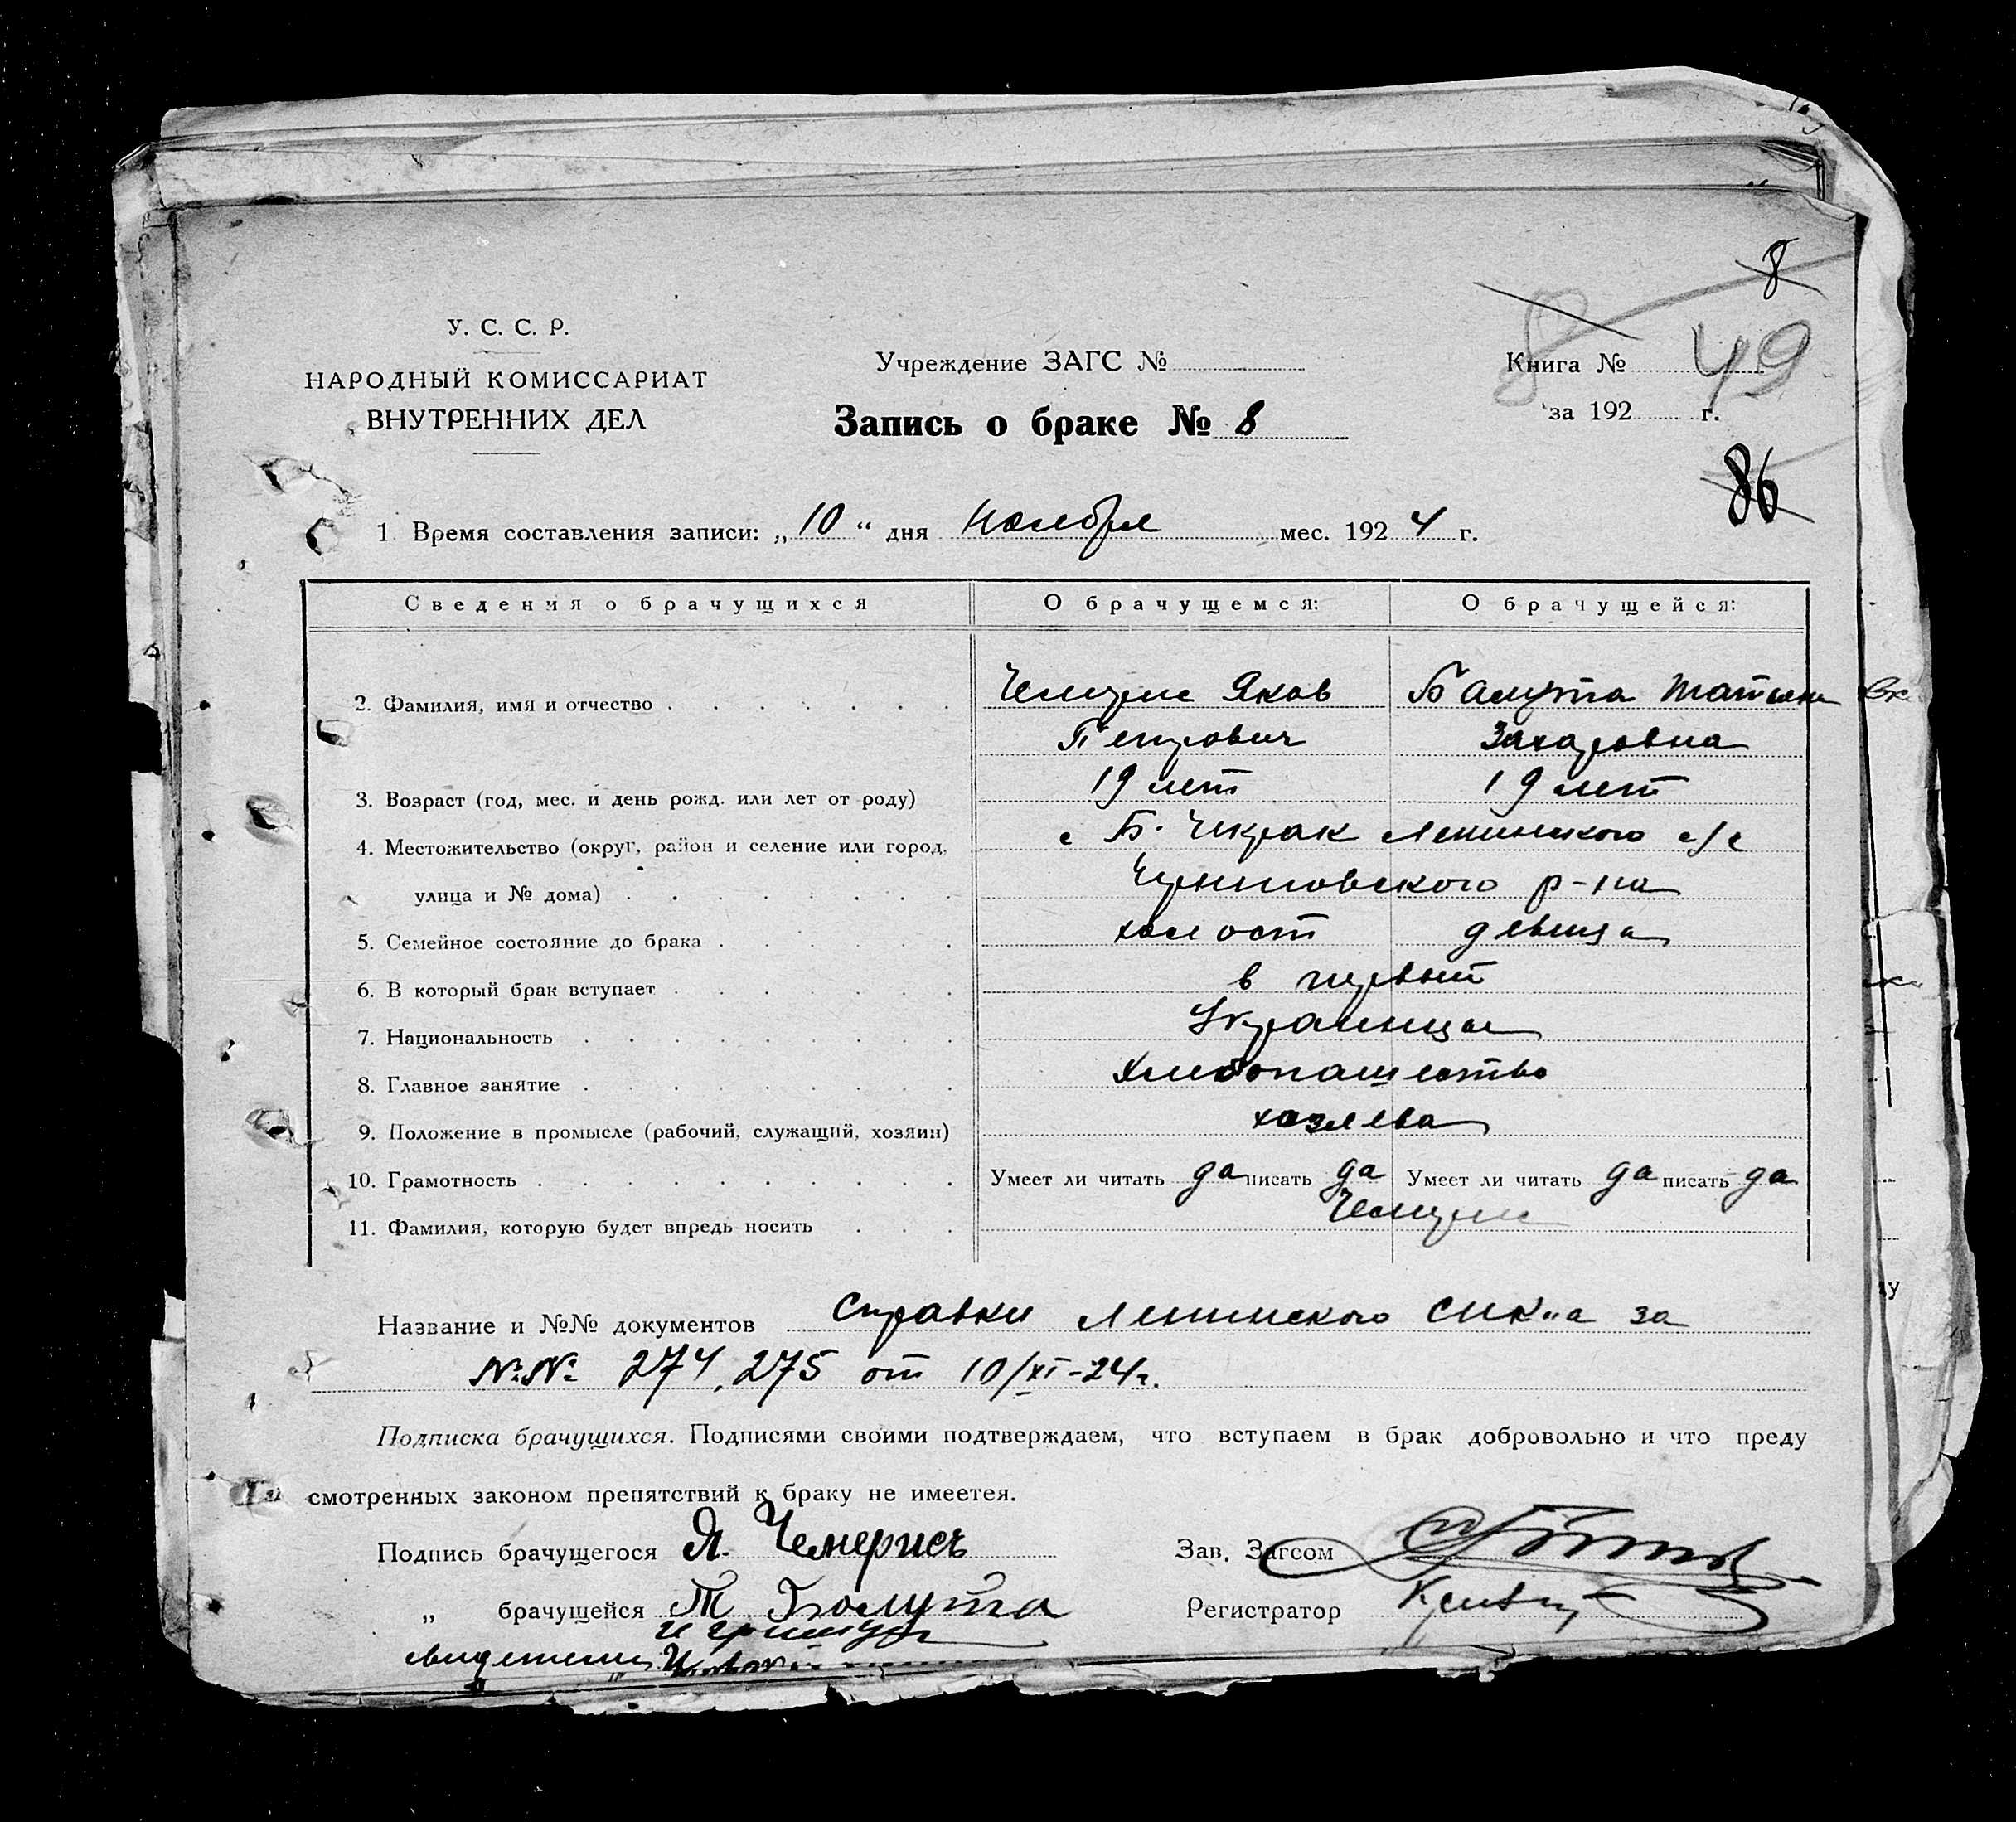 8
У. С. С. Р.
НАРОДНЫЙ КОМИССАРИАТ
ВНУТРЕННИХ ДЕЛ
Учреждение ЗАГС №
Запись о браке № 8
8
Книга № 49
за 192 г.
86
1. Время составления записи: „10“ дня ноября мес. 1924 г.
Сведения о брачущихся О брачущемся: О брачущейся:
2. Фамилия, имя и отчество Чемерис Яков Балута Татьяна
Петрович Захаровна
3. Возраст (год, мес. и день рожд. или лет от роду) 19 лет 19 лет
4. Местожительство (округ, район и селение или город, с Б. Чикрак Ленинского с/с
улица и № дома) Черниговского р-на
5. Семейное состояние до брака холост девица
6. В который брак вступает в первый
7. Национальность Украинцы
8. Главное занятие хлебопашество
9. Положение в промысле (рабочий, служащий, хозяин) хозяева
10. Грамотность Умеет ли читать да писать да Умеет ли читать да писать да
11. Фамилия, которую будет впредь носить Чемерис
Название и №№ документов Справки Ленинского СИК"а за
№№ 274, 275 от 10/XI-24г.
Подписка брачущихся. Подписями своими подтверждаем, что вступаем в брак добровольно и что преду
смотренных законом препятствий к браку не имеетея.
Подпись брачущегося Я. Чемерисъ Зав. Загсом
„ брачущейся Т Балута Регистратор
свидетели